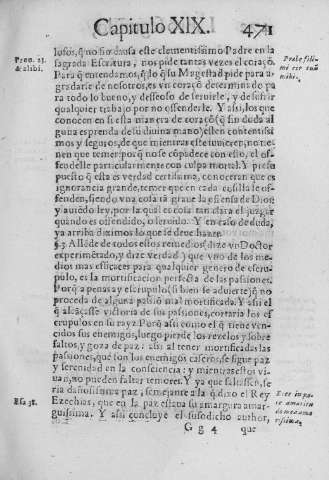 Capitulo XIX. 471
losos, q̃ no sin causa este clementissimo Padre en la
sagrada Escritura, nos pide tantas vezes el coraçõ.
Prou. 23.
& alibi.
Præbe fili
mi cor tuũ
mihi.
Para q̃ entendamos, q̃ lo q̃ su Magestad pide para a-
gradarse de nosotros, es vn coraçõ determinado pa
ra todo lo bueno, y desseoso de seruirle, y de sufrir
qualquier trabajo por no ofenderle. Y assi, los que
conocen en si esta manera de coraçõ (q̃ sin duda al
guna es prenda de su diuina mano) esten contentissi
mos y seguros, de que mientras este tuuieren, no tie-
nen que temer: por q̃ no se cõpadece con esto, el ofe-
delle particularmente con culpa mortal. Y presu
puesto q̃ esta es verdad certissima, conoceran que es
ignorancia grande, temer que en cada cosilla le ofe-
denden, siendo vna cosa tã graue la ofensa de Dios,
y auiẽdo ley, por la qual es cosa tan clara el juzgar
quando es ofendido, o seruido. Y en caso de duda,
ya arriba diximos lo que se deue hazer.
§.3. Allẽde de todos estos remedios (dize vn Doctor
experimẽtado, y dize verdad) que vno de los me-
dios mas eficaces para qualquier genero de escru-
pulo, es la mortificacion perfecta de las passiones.
Porq̃ apenas ay escrupulo (si bien se aduierte) q̃ no
proceda de alguna passiõ mal mortificada. Y assi el
q̃ alcãçasse victoria de sus passiones, cortaria los es-
crupulos en su rayz. Porq̃ assi como el q̃ tiene ven-
cidos sus enemigos, luego pierde los rezelos y sobre
saltos, y goza de paz: assi al tener mortificadas las
passiones, que son los enemigos caseros, se sigue paz
y serenidad en la consciencia; y mientras estos vi-
uan, no pueden faltar temores. Y ya que faltassen, se
ria dañosissima paz, semejante a la q̃ dixo el Rey
Esa 38.
Ecce in pa-
ce amaritu
do mea ama
rissima,
Ezechias, que en la paz estaua su amargura amar-
guissima. Y assi concluye el susodicho author,
G g 4 que